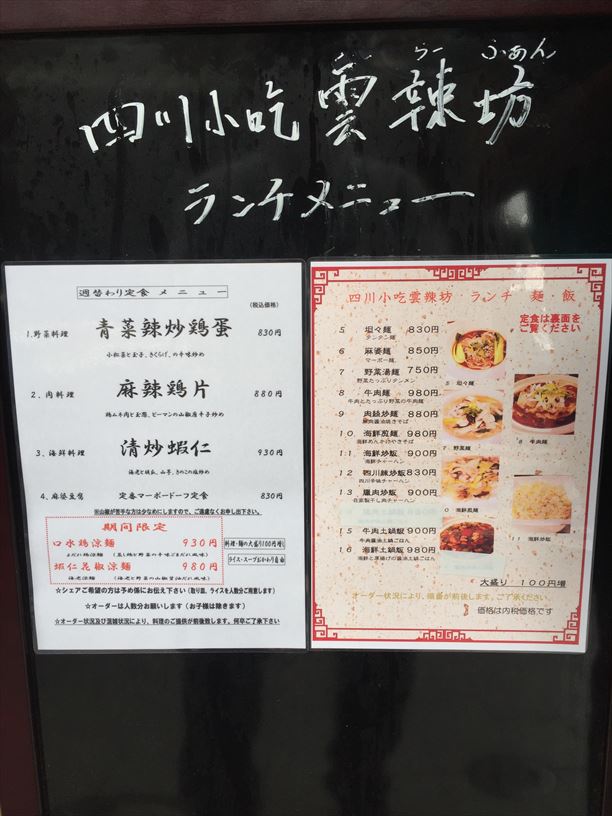 らー ふぁん
四川小吃 雲辣坊
ランチメニュー
週替わり定食 メニュー
(税込価格)
1.野菜料理 青菜辣炒鶏蛋 830円
小松菜と玉子、きくらげ、の辛味炒め
2.肉料理 麻辣鶏片 880円
鶏ムネ肉と玉葱、ピーマンの山椒唐辛子炒め
3.海鮮料理 清炒蝦仁 930円
4.麻婆豆腐 定番マーボードーフ定食 830円
※山椒が苦手な方は少なめにしますので、ご遠慮なくお申し出下さい。
期間限定
口水鶏涼麺 930円
よだれ鶏涼麺 (蒸し鶏と野菜の辛味ごまだれ風味)
蝦仁花椒涼麺 980円
海老涼麺 (海老と野菜の山椒醤油だれ風味)
料理・麺の大盛り100円増し
ライス・スープおかわり自由
☆シェアご希望の方は予め係にお伝え下さい(取り皿、ライスを人数分ご用意します)
☆オーダーは人数分お願いします(お子様は除きます)
☆オーダー状況及び混雑状況により、料理のご提供が前後致します。何卒ご了承下さい
四川小吃雲辣坊・ランチ 麺・飯
定食は裏面を
ご覧ください
5 坦々麺 830円
タンタン麺
6 麻婆麺 850円
マーボー麺
7 野菜湯麺 750円
野菜たっぷりタンメン
8 牛肉麺 980円
牛肉とたっぷり野菜の牛肉麺
9 肉絲炒麺 880円
豚肉醤油焼きそば
10 海鮮煎麺 980円
海鮮あんかけやきそば
11 海鮮炒飯 900円
海鮮チャーハン
12 四川辣炒飯 830円
四川辛味チャーハン
13 臘肉炒飯 830円
自家製干し肉チャーハン
15 牛肉土鍋飯 900円
牛肉醤油土鍋ごはん
16 海鮮土鍋飯 980円
海鮮と厚揚げの醤油土鍋ごはん
5 坦々麺
8 牛肉麺
7 野菜麺
10 海鮮煎麺
11 海鮮炒飯
大盛り 100円増
オーダー状況により、順番が前後します。ご了承ください。
価格は内税価格です